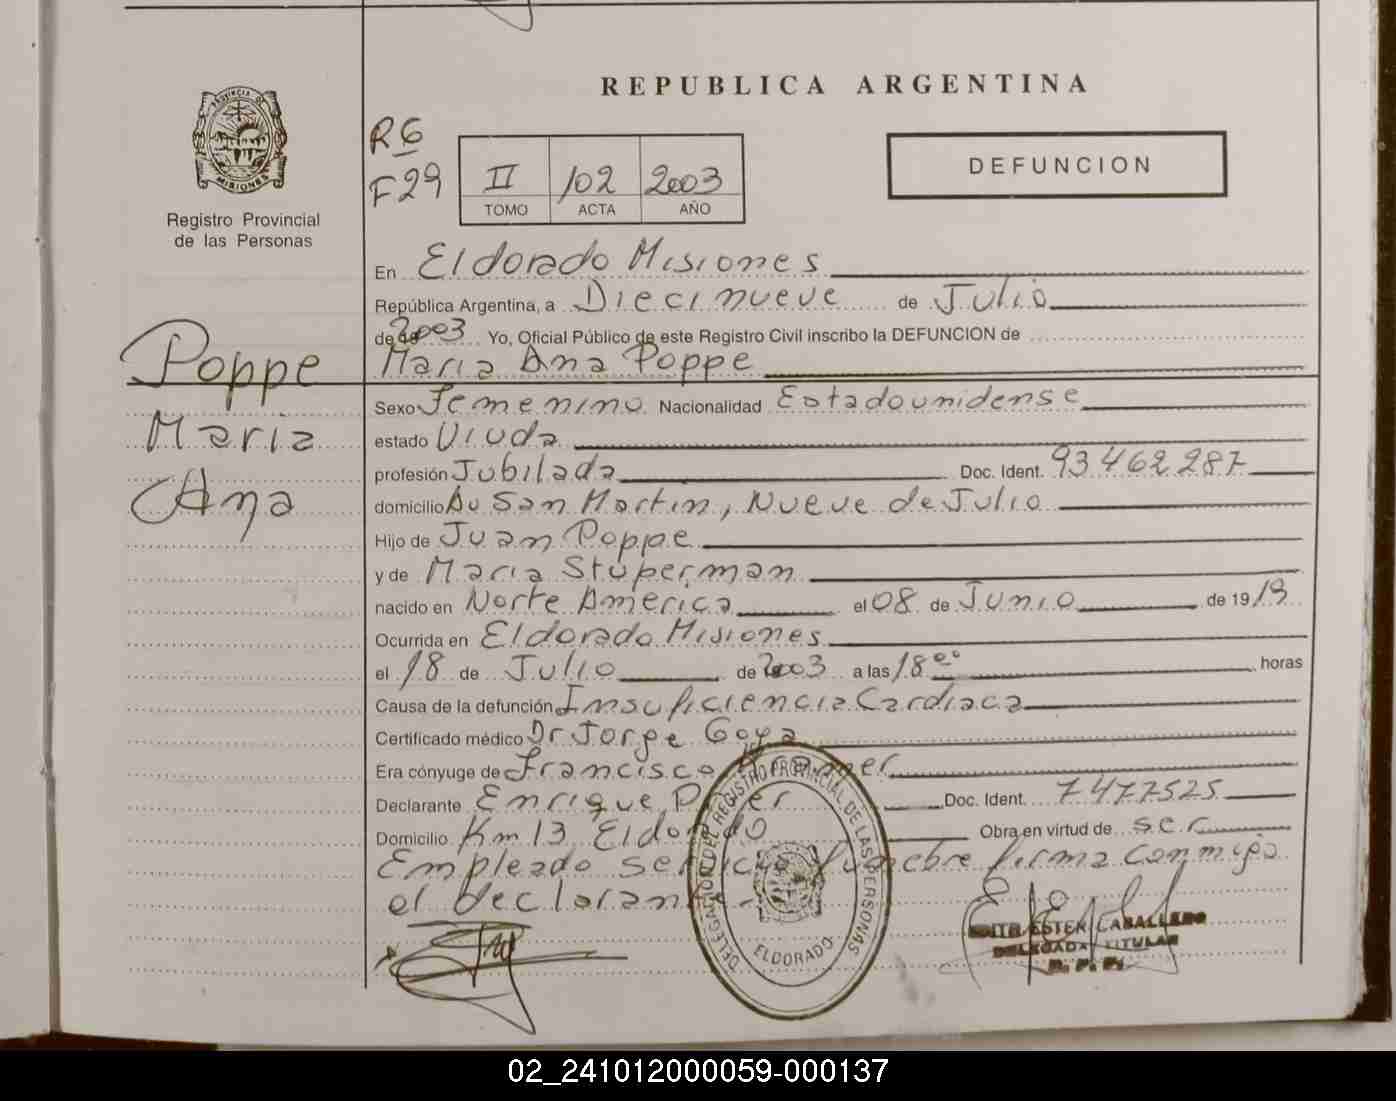 REPUBLICA ARGENTINA
PROVINCIA DE
MISIONES
Registro Provincial
de las Personas
R6
F29
II 102 2003
TOMO ACTA AÑO
DEFUNCION
En Eldorado Misiones
República Argentina, a Diecinueve de Julio
de 2003 Yo, Oficial Público de este Registro Civil inscribo la DEFUNCION de
Maria Ana Poppe
Poppe
Maria
Ana
Sexo Femenino Nacionalidad Estadounidense
estado Viuda
profesión Jubilada Doc. Ident. 93462287
domicilio Av San Martin, Nueve de Julio
Hijo de Juan Poppe
y de Maria Stuperman
nacido en Norte America el 08 de Junio de 1919
Ocurrida en Eldorado Misiones
el 18 de Julio de 2003 a las 18 00 horas
Causa de la defunción Insuficiencia Cardiaca
Certificado médico Dr Jorge Goya
Era cónyuge de Francisco
Declarante Enrique Doc. Ident. 7477525
Domicilio Km 13 Eldorado Obra en virtud de ser
Empleado servicio funebre firma conmigo
el declarante-
DELEGACION DEL REGISTRO PROVINCIAL DE LAS PERSONAS
ELDORADO
EDITH ESTER CABALLERO
DELEGADA TITULAR
R. P. P.
02_241012000059-000137